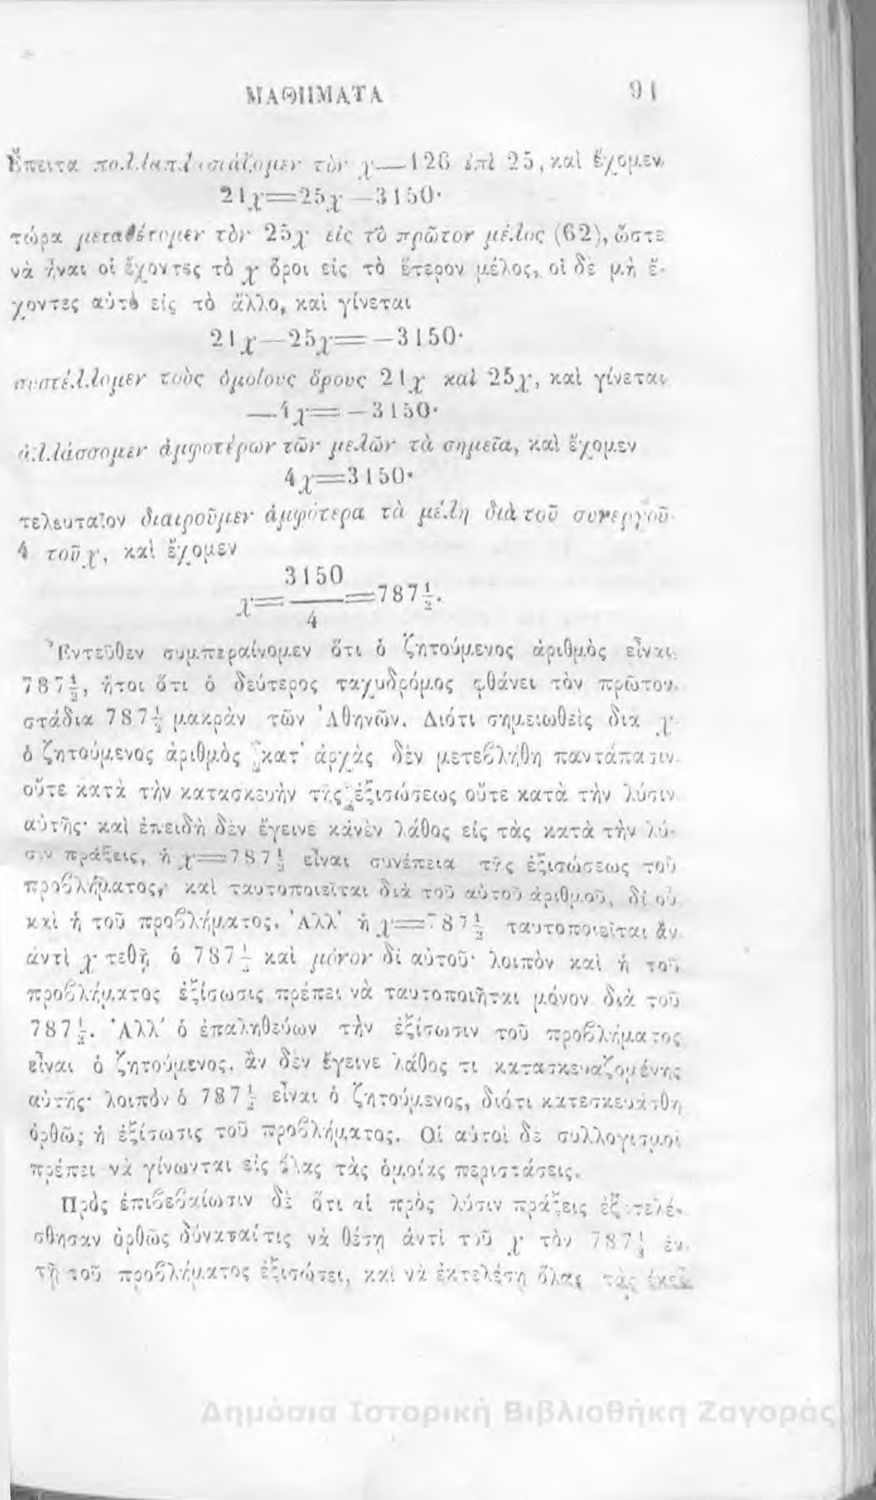 ΜΑΘΗΜΑΤΑ 91
Ἔπειτα πολλαπλασιάζομεν τὸν χ—126 ἐπὶ 25, καὶ ἔχομεν
21χ=25χ—3150·
τώρα μεταθέτομεν τὸν 25χ εἰς τὸ πρῶτον μέλος (62), ὥστε
νὰ ἦναι οἱ ἔχοντες τὸ χ ὅροι εἰς τὸ ἕτερον μέλος, οἱ δὲ μὴ ἔ-
χοντες αὐτὸ εἰς τὸ ἄλλο, καὶ γίνεται
21χ—25χ=—3150·
συστέλλομεν τοὺς ὁμοίους ὅρους 21χ καὶ 25χ, καὶ γίνεται
—4χ=—3150·
ἀλλάσσομεν ἀμφοτέρων τῶν μελῶν τὰ σημεῖα, καὶ ἔχομεν
4χ=3150·
τελευταῖον διαιροῦμεν ἀμφότερα τὰ μέλη διὰ τοῦ συνεργοῦ
4 τοῦ χ, καὶ ἔχομεν
χ=3150/4=787½.
Ἐντεῦθεν συμπεραίνομεν ὅτι ὁ ζητούμενος ἀριθμὸς εἶναι
787½, ἤτοι ὅτι ὁ δεύτερος ταχυδρόμος φθάνει τὸν πρῶτον
στάδια 787½ μακρὰν τῶν Ἀθηνῶν. Διότι σημειωθεὶς διὰ χ
ὁ ζητούμενος ἀριθμὸς κατ' ἀρχὰς δὲν μετεβλήθη παντάπασιν
οὔτε κατὰ τὴν κατασκευὴν τῆς ἐξισώσεως οὔτε κατὰ τὴν λύσιν
αὐτῆς· καὶ ἐπειδὴ δὲν ἔγεινε κἀνὲν λάθος εἰς τὰς κατὰ τὴν λύ-
σιν πράξεις, ἡ χ=787½ εἶναι συνέπεια τῆς ἐξισώσεως τοῦ
προβλήματος, καὶ ταυτοποιεῖται διὰ τοῦ αὐτοῦ ἀριθμοῦ, δι' οὗ
καὶ ἡ τοῦ προβλήματος. Ἀλλ' ἡ χ=787½ ταυτοποιεῖται ἂν
ἀντὶ χ τεθῇ ὁ 787½ καὶ μόνον δι' αὐτοῦ· λοιπὸν καὶ ἡ τοῦ
προβλήματος ἐξίσωσις πρέπει νὰ ταυτοποιῆται μόνον διὰ τοῦ
787½. Ἀλλ' ὁ ἐπαληθεύων τὴν ἐξίσωσιν τοῦ προβλήματος
εἶναι ὁ ζητούμενος, ἂν δὲν ἔγεινε λάθος τι κατασκευαζομένης
αὐτῆς· λοιπὸν ὁ 787½ εἶναι ὁ ζητούμενος, διότι κατεσκευάσθη
ὀρθῶς ἡ ἐξίσωσις τοῦ προβλήματος. Οἱ αὐτοὶ δὲ συλλογισμοὶ
πρέπει νὰ γίνωνται εἰς ὅλας τὰς ὁμοίας περιστάσεις.
Πρὸς ἐπιβεβαίωσιν δὲ ὅτι αἱ πρὸς λύσιν πράξεις ἐξετελέ-
σθησαν ὀρθῶς δύναταί τις νὰ θέσῃ ἀντὶ τοῦ χ τὸν 787½ ἐν
τῇ τοῦ προβλήματος ἐξισώσει, καὶ νὰ ἐκτελέσῃ ὅλας τὰς
Δημόσια Ιστορική Βιβλιοθήκη Ζαγοράς